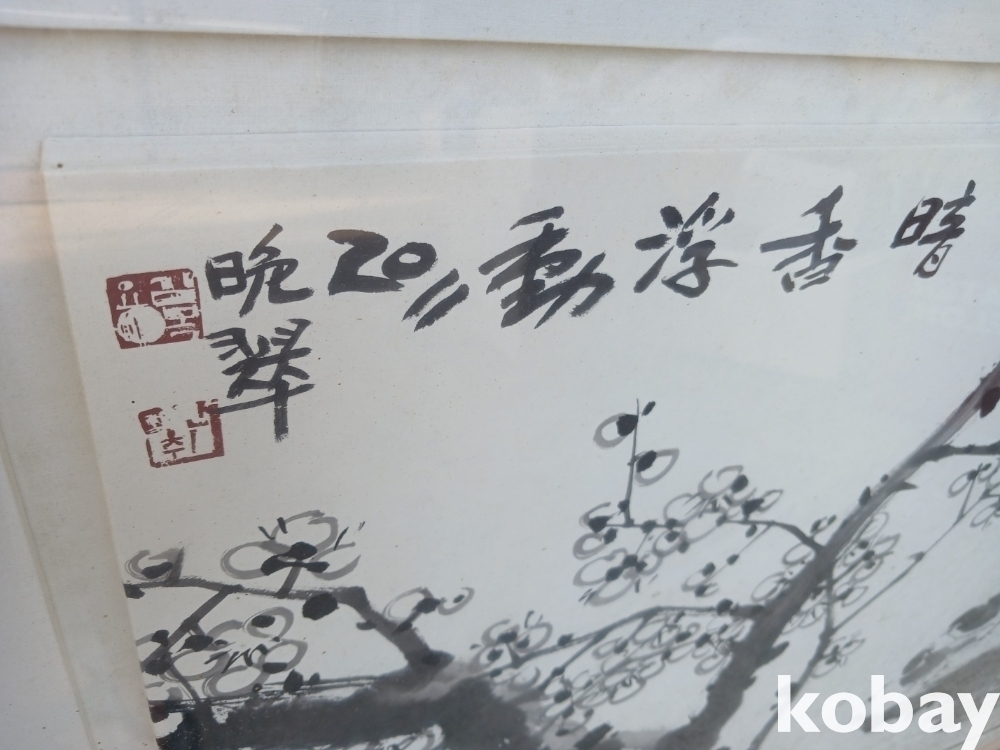 晴香浮動 2011
晚翠
kobay